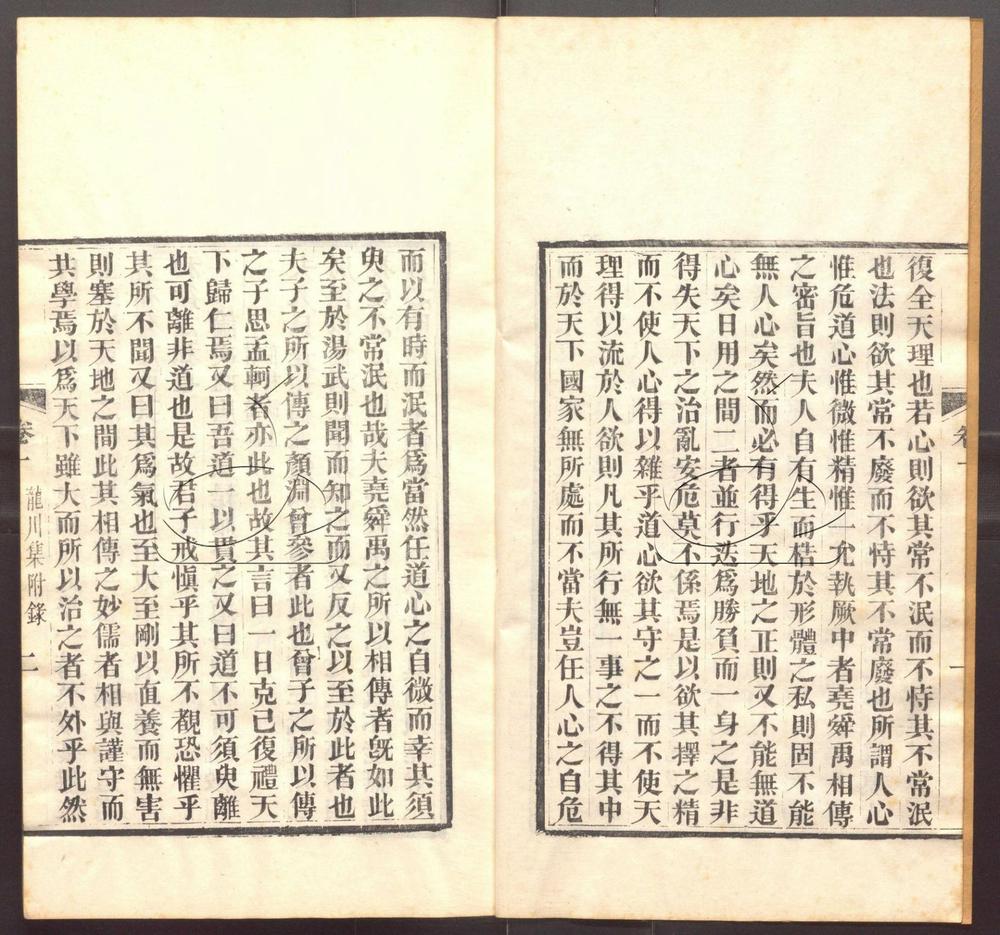 復全天理也若心則欲其常不泯而不恃其不常泯
也法則欲其常不廢而不恃其不常廢也所謂人心
惟危道心惟微惟精惟一允執厥中者堯舜禹相傳
之密旨也夫人自有生而梏於形體之私則固不能
無人心矣然而必有得乎天地之正則又不能無道
心矣日用之間二者並行迭爲勝負而一身之是非
得失天下之治亂安危莫不係焉是以欲其擇之精
而不使人心得以雜乎道心欲其守之一而不使天
理得以流於人欲則凡其所行無一事之不得其中
而於天下國家無所處而不當夫豈任人心之自危
而以有時而泯者爲當然任道心之自微而幸其須
臾之不常泯也哉夫堯舜禹之所以相傳者旣如此
矣至於湯武則聞而知之而又反之以至於此者也
夫子之所以傳之顏淵曾參者此也曾子之所以傳
之子思孟軻者亦此也故其言曰一日克己復禮天
下歸仁焉又曰吾道一以貫之又曰道不可須臾離
也可離非道也是故君子戒愼乎其所不覩恐懼乎
其所不聞又曰其爲氣也至大至剛以直養而無害
則塞於天地之間此其相傳之妙儒者相與謹守而
共學焉以爲天下雖大而所以治之者不外乎此然
卷一 龍川集附錄 二